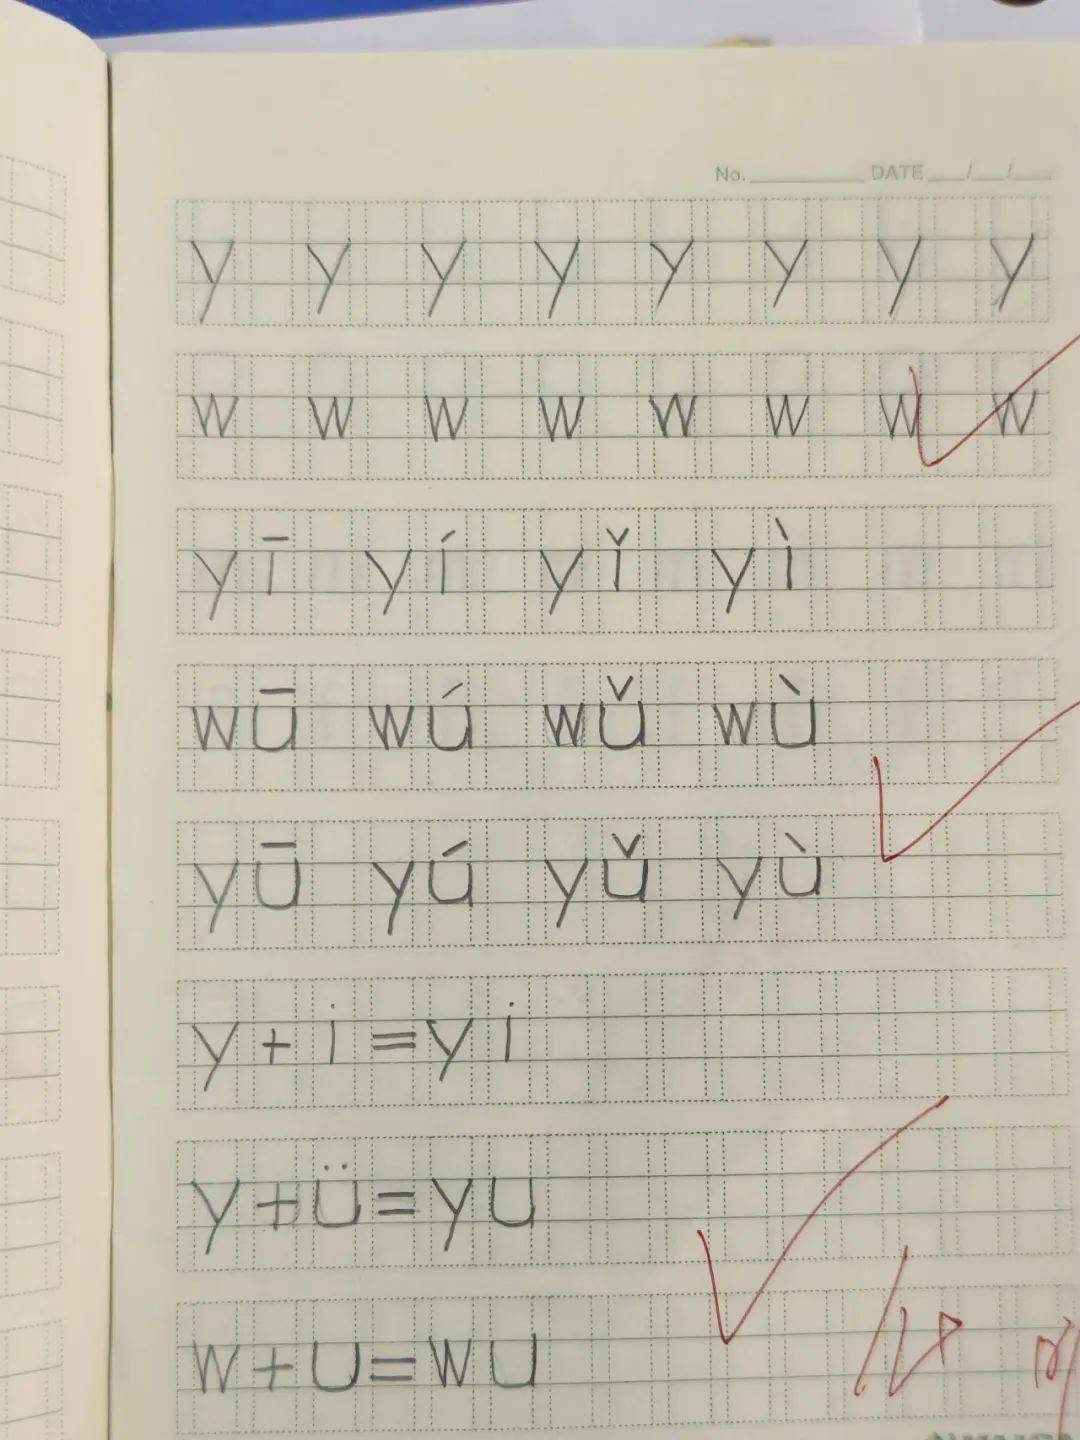 No. DATE / /
y y y y y y y y
w w w w w w w w
yī yí yǐ yì
wū wú wǔ wù
yū yú yǔ yù
y+i=yi
y+ü=yu
w+u=wu